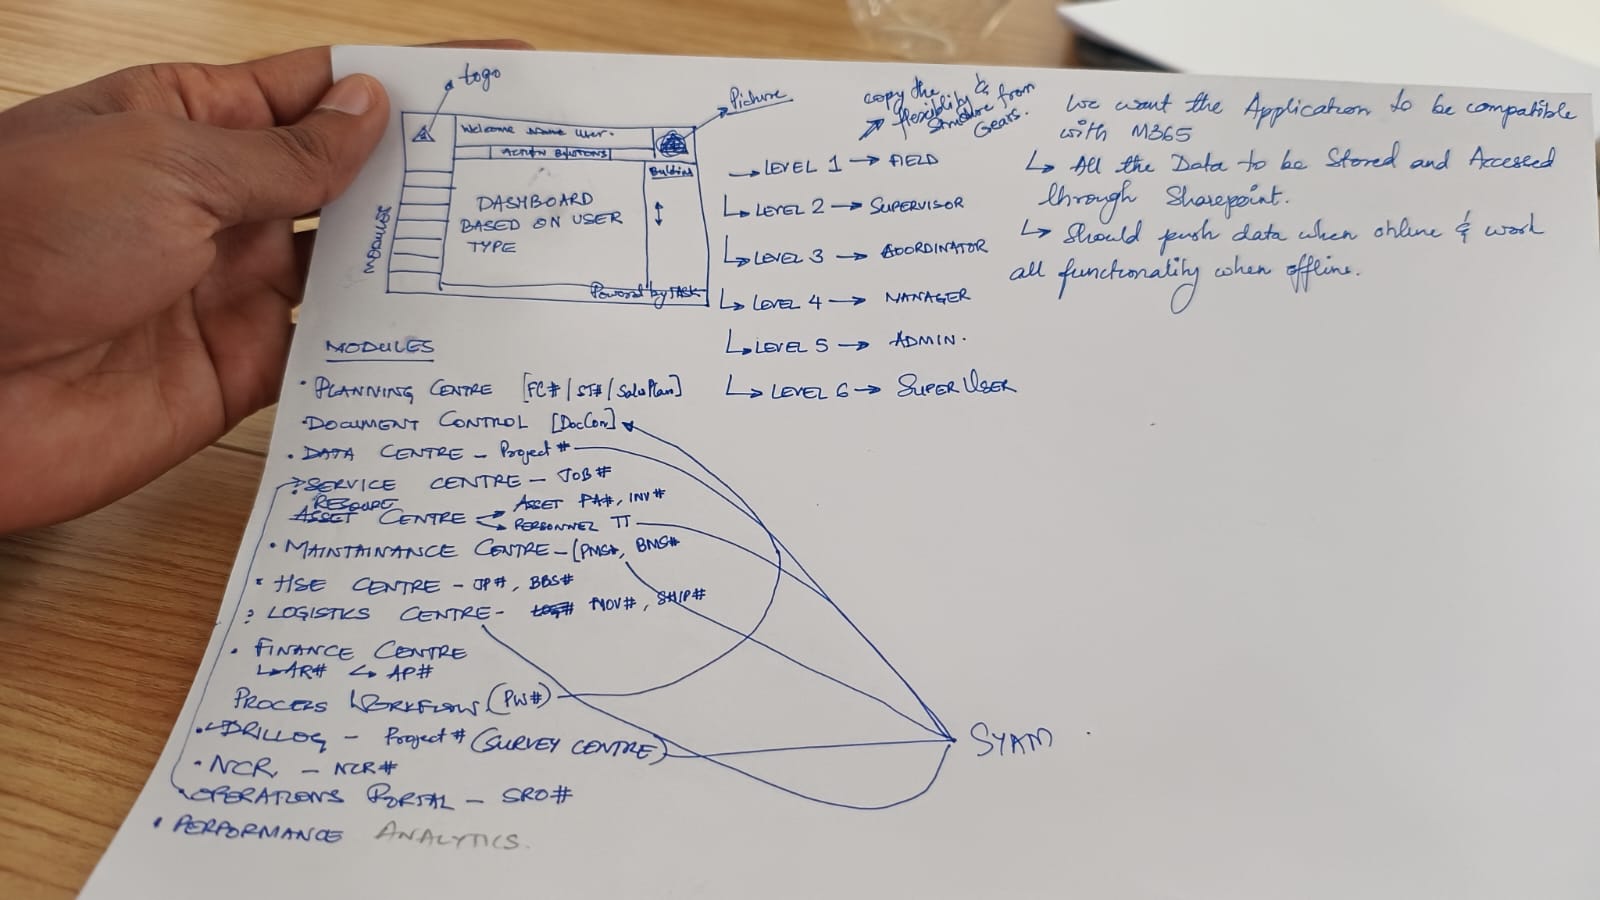 logo
Welcome Name User.
ACTION BUTTONS
Picture
MODULES
DASHBOARD
BASED ON USER
TYPE
Powered by TASK
copy the
flexibility &
structure from
Gears.
LEVEL 1 → FIELD
LEVEL 2 → SUPERVISOR
LEVEL 3 → COORDINATOR
LEVEL 4 → MANAGER
LEVEL 5 → ADMIN.
LEVEL 6 → SUPER USER
We want the Application to be compatible
with M365
↳ All the Data to be Stored and Accessed
through Sharepoint.
↳ Should push data when online & work
all functionality when offline.
MODULES
• PLANNING CENTRE [FC# / ST# / SalesPlan]
• DOCUMENT CONTROL [DocCon]
• DATA CENTRE - Project #
• SERVICE CENTRE - JOB #
ASSET CENTRE ASSET PA#, INV#
PERSONNEL TT
• MAINTAINANCE CENTRE - (PMS#, BMS#
• HSE CENTRE - JP#, BBS#
LOGISTICS CENTRE - MOV#, SHIP#
• FINANCE CENTRE
↳ AR# ↳ AP#
PROCESS WORKFLOWS (PW#)
• DRILLOG - Project # (SURVEY CENTRE)
• NCR - NCR#
• OPERATIONS PORTAL - SRO#
• PERFORMANCE ANALYTICS.
SYAM